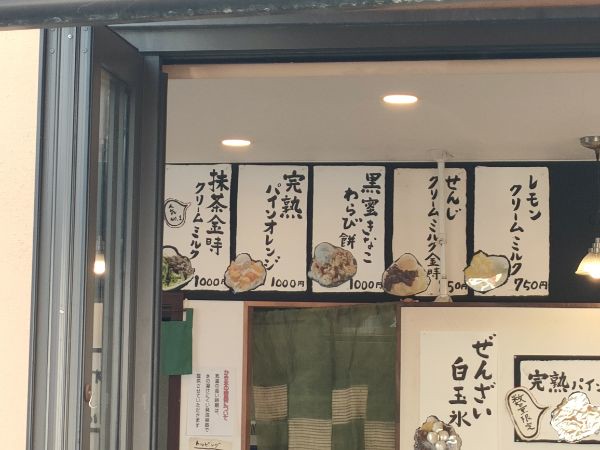 レモン
クリームミルク
750円
せんじ
クリームミルク金時
50円
黒蜜きなこ
わらび餅
1000円
完熟
パインオレンジ
1000円
抹茶金時
クリームミルク
1000円
ぜんざい
白玉氷
完熟パイン
数量限定
トッピング